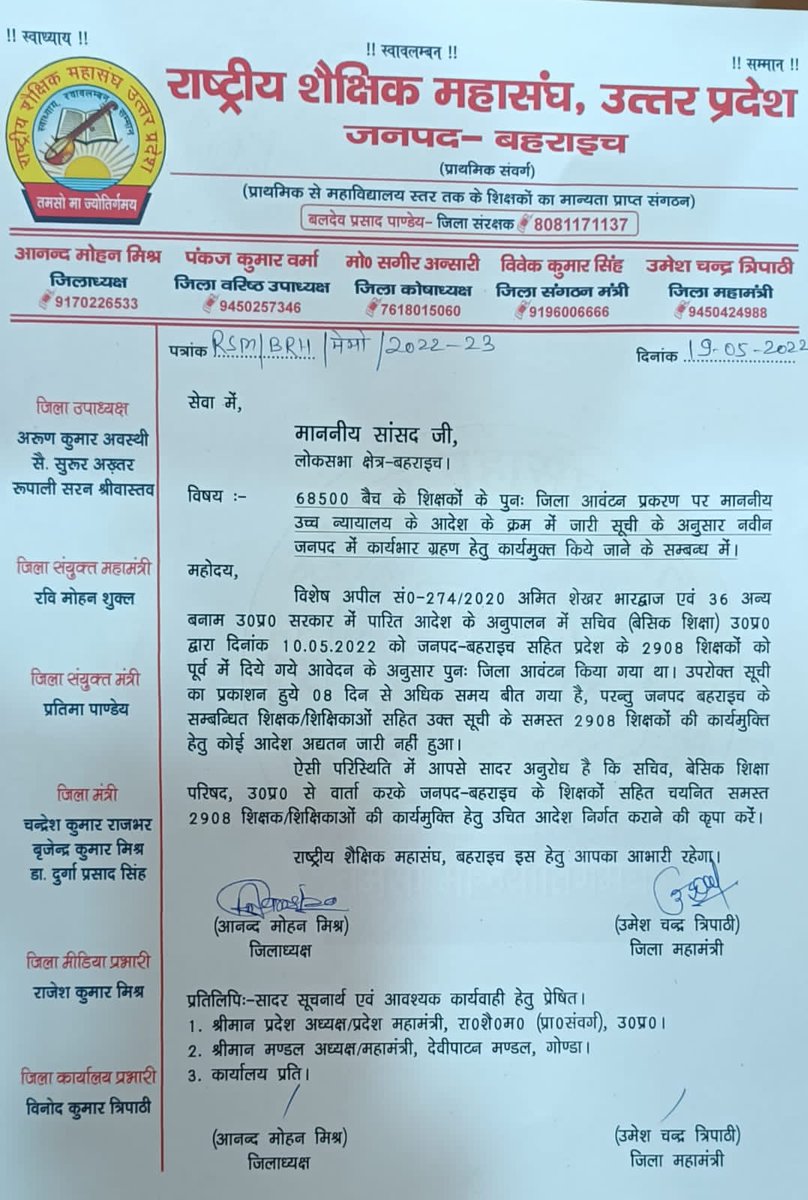 !! स्वाध्याय !!
!! स्वावलम्बन !!
!! सम्मान !!
राष्ट्रीय शैक्षिक महासंघ उत्तर प्रदेश
स्वाध्याय, स्वावलम्बन, सम्मान
तमसो मा ज्योतिर्गमय
राष्ट्रीय शैक्षिक महासंघ, उत्तर प्रदेश
जनपद- बहराइच
(प्राथमिक संवर्ग)
(प्राथमिक से महाविद्यालय स्तर तक के शिक्षकों का मान्यता प्राप्त संगठन)
बलदेव प्रसाद पाण्डेय- जिला संरक्षक 8081171137
आनन्द मोहन मिश्र
जिलाध्यक्ष
9170226533
पंकज कुमार वर्मा
जिला वरिष्ठ उपाध्यक्ष
9450257346
मो0 सगीर अन्सारी
जिला कोषाध्यक्ष
7618015060
विवेक कुमार सिंह
जिला संगठन मंत्री
9196006666
उमेश चन्द्र त्रिपाठी
जिला महामंत्री
9450424988
पत्रांक RSM/BRH/मेमो/2022-23
दिनांक 19-05-2022
जिला उपाध्यक्ष
अरूण कुमार अवस्थी
सै. सुरुर अख़्तर
रूपाली सरन श्रीवास्तव
जिला संयुक्त महामंत्री
रवि मोहन शुक्ल
जिला संयुक्त मंत्री
प्रतिमा पाण्डेय
जिला मंत्री
चन्द्रेश कुमार राजभर
बृजेन्द्र कुमार मिश्र
डा. दुर्गा प्रसाद सिंह
जिला मीडिया प्रभारी
राजेश कुमार मिश्र
जिला कार्यालय प्रभारी
विनोद कुमार त्रिपाठी
सेवा में,
माननीय सांसद जी,
लोकसभा क्षेत्र-बहराइच।
विषय :- 68500 बैच के शिक्षकों के पुनः जिला आवंटन प्रकरण पर माननीय
उच्च न्यायालय के आदेश के क्रम में जारी सूची के अनुसार नवीन
जनपद में कार्यभार ग्रहण हेतु कार्यमुक्त किये जाने के सम्बन्ध में।
महोदय,
विशेष अपील सं0-274/2020 अमित शेखर भारद्वाज एवं 36 अन्य
बनाम उ0प्र0 सरकार में पारित आदेश के अनुपालन में सचिव (बेसिक शिक्षा) उ0प्र0
द्वारा दिनांक 10.05.2022 को जनपद-बहराइच सहित प्रदेश के 2908 शिक्षकों को
पूर्व में दिये गये आवेदन के अनुसार पुनः जिला आवंटन किया गया था। उपरोक्त सूची
का प्रकाशन हुये 08 दिन से अधिक समय बीत गया है, परन्तु जनपद बहराइच के
सम्बन्धित शिक्षक/शिक्षिकाओं सहित उक्त सूची के समस्त 2908 शिक्षकों की कार्यमुक्ति
हेतु कोई आदेश अद्यतन जारी नहीं हुआ।
ऐसी परिस्थिति में आपसे सादर अनुरोध है कि सचिव, बेसिक शिक्षा
परिषद, उ0प्र0 से वार्ता करके जनपद-बहराइच के शिक्षकों सहित चयनित समस्त
2908 शिक्षक/शिक्षिकाओं की कार्यमुक्ति हेतु उचित आदेश निर्गत कराने की कृपा करें।
राष्ट्रीय शैक्षिक महासंघ, बहराइच इस हेतु आपका आभारी रहेगा।
(आनन्द मोहन मिश्र)
जिलाध्यक्ष
(उमेश चन्द्र त्रिपाठी)
जिला महामंत्री
प्रतिलिपिः-सादर सूचनार्थ एवं आवश्यक कार्यवाही हेतु प्रेषित।
1. श्रीमान प्रदेश अध्यक्ष/प्रदेश महामंत्री, रा0शै0म0 (प्रा0संवर्ग), उ0प्र0।
2. श्रीमान मण्डल अध्यक्ष/महामंत्री, देवीपाटन मण्डल, गोण्डा।
3. कार्यालय प्रति।
(आनन्द मोहन मिश्र)
जिलाध्यक्ष
(उमेश चन्द्र त्रिपाठी)
जिला महामंत्री